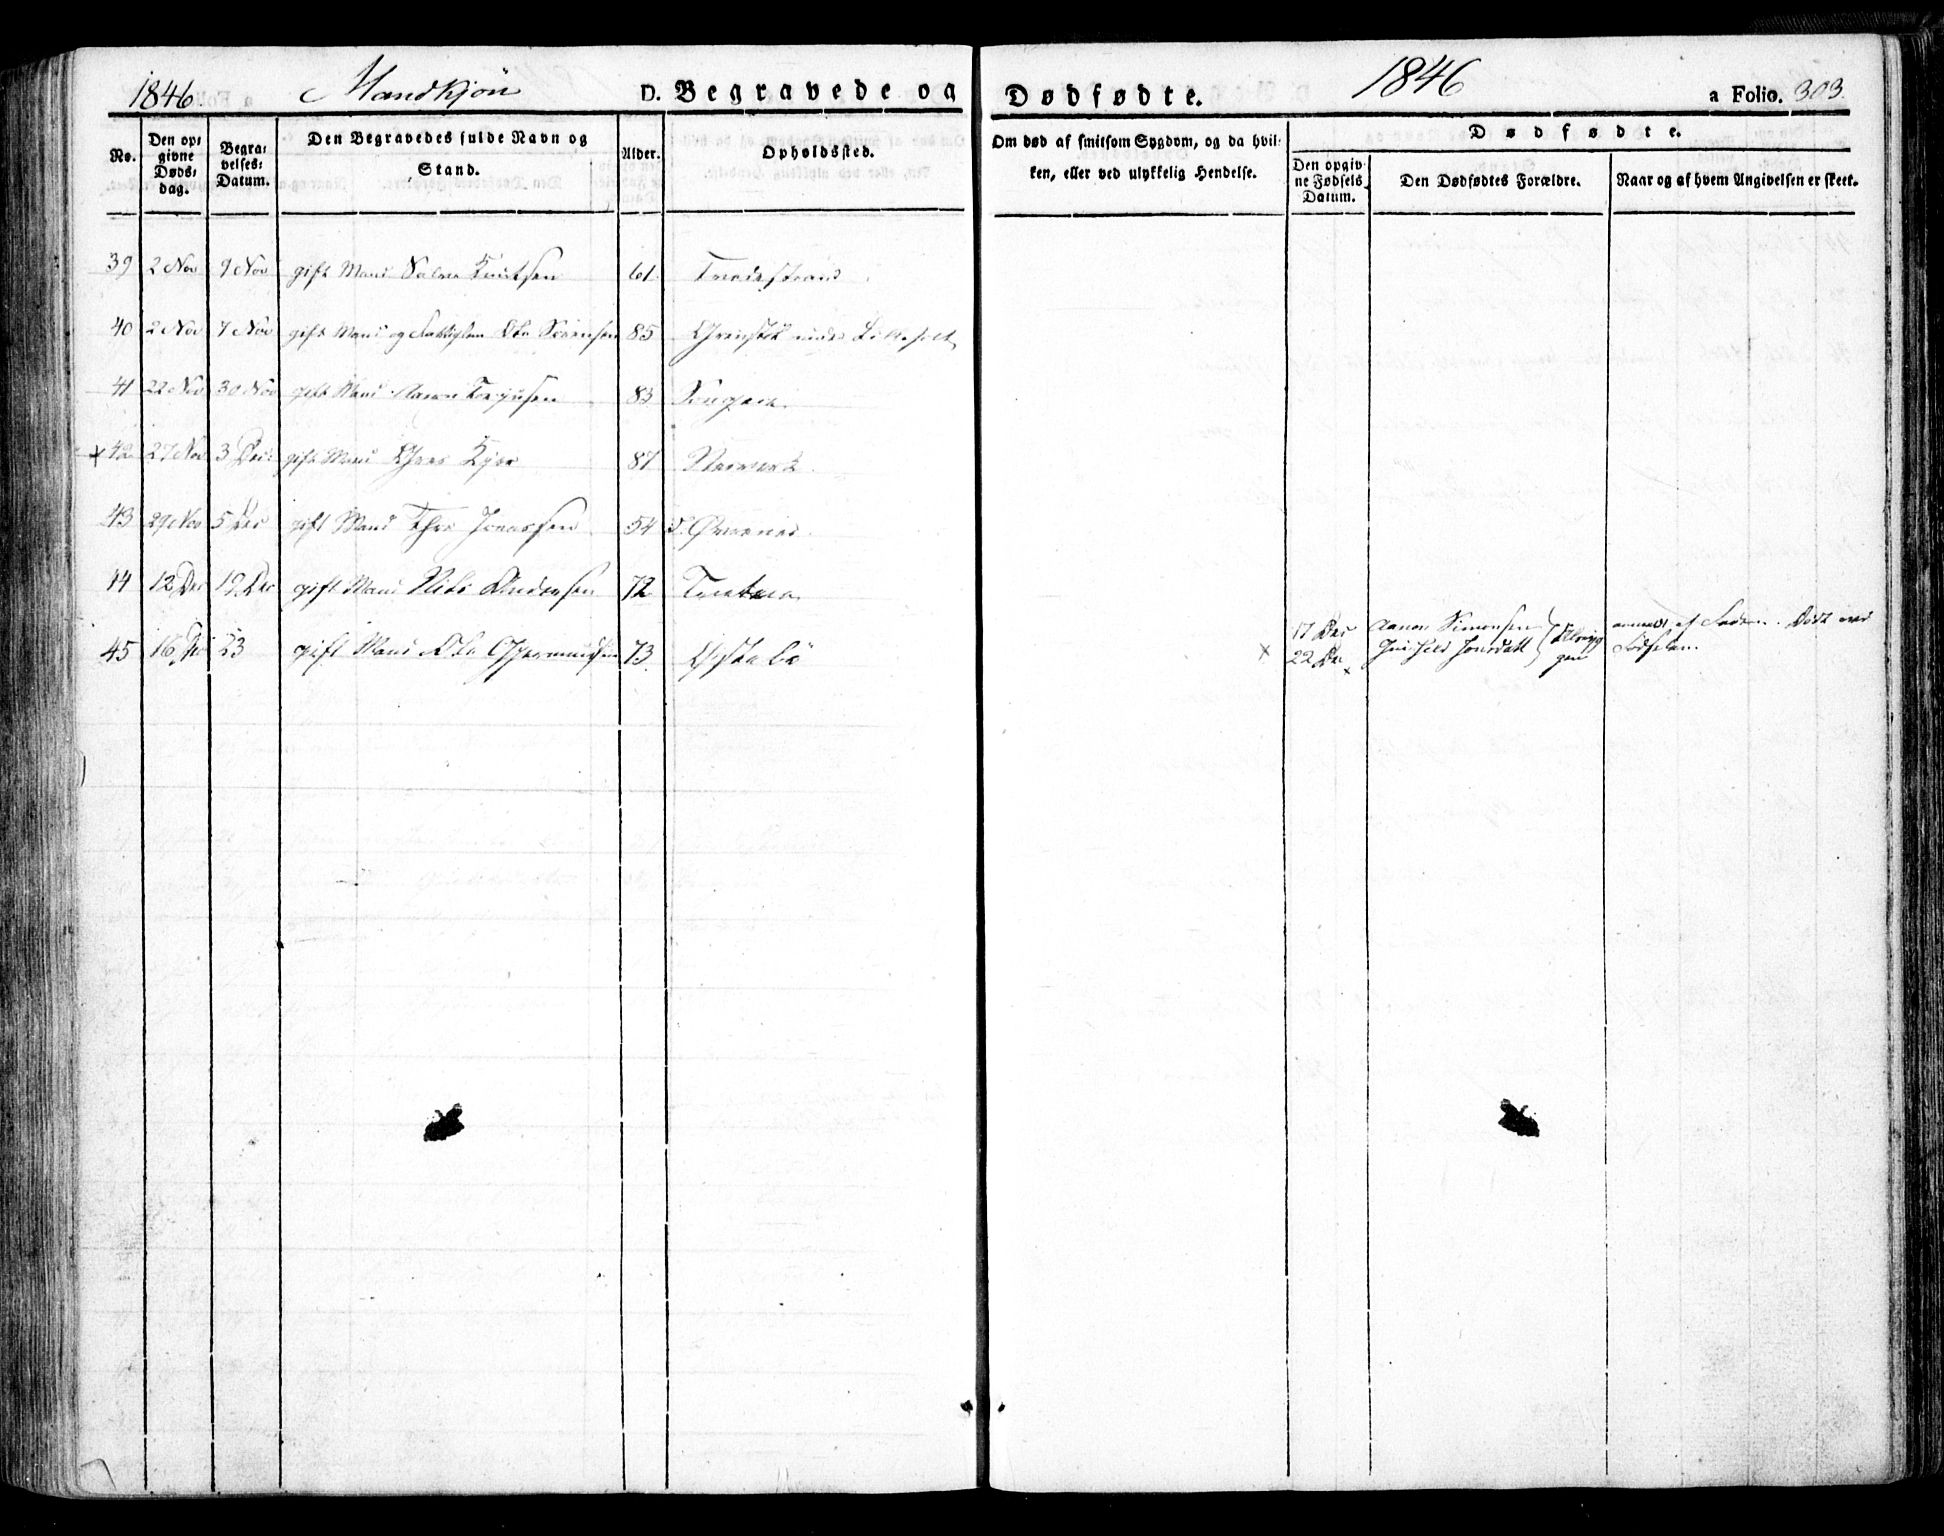 1846 Mandkjøn D. Begravede og Dødfødte. 1846 a Folio. 303.
No. Den opgivne Dødsdag. Begravelses-Datum. Den Begravedes fulde Navn og Stand. Alder. Opholdssted. Om død af smitsom Sygdom, og da hvilken, eller ved ulykkelig Hendelse. Dødfødte.
Den opgivne Fødsels Datum. Den Dødfødtes Forældre. Naar og af hvem Angivelsen er skeet.
39 2 Nov 9 Nov gift Mand Salve Knutsen 61
40 2 Nov 7 Nov gift Mand og Ole Sørensen 85 under
41 22 Nov 30 Nov gift Mand Aanon Terjusen 83 Songe
42 27 Nov 3 Dec: gift Mand 87
43 29 Nov 5 Dec gift Mand Thor Jonassen 54
44 12 Dec 19 Dec gift Mand Niels Andersen 72
45 16 Dec 23 gift Mand Ole Gjermundsen 73
17 Dec Aanon Simonsen
22 Dec Gunhild Jonsdatt
anmeldt af Faderen. Død ved
Fødselen.